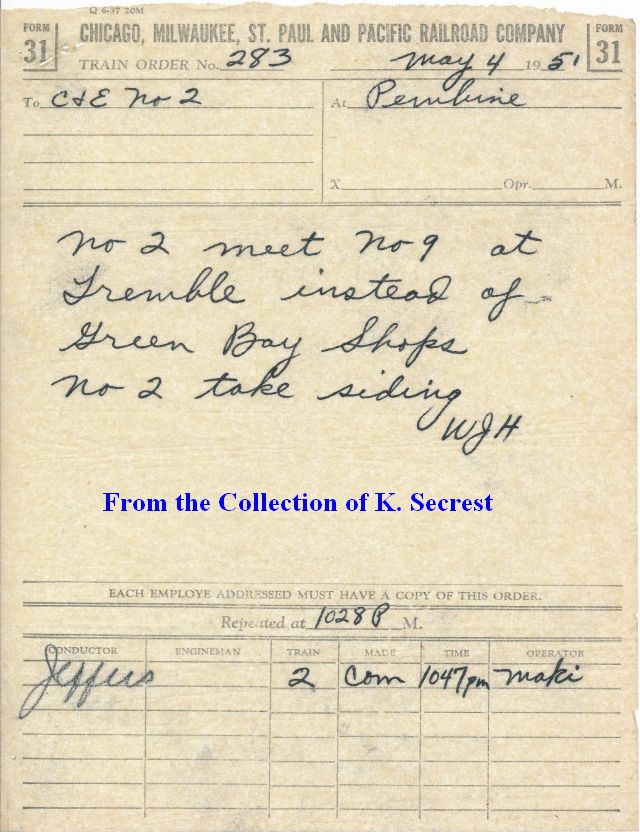 Q 6-37 20M
FORM 31 CHICAGO, MILWAUKEE, ST. PAUL AND PACIFIC RAILROAD COMPANY FORM 31
TRAIN ORDER No. 283 May 4 1951
To C&E No 2 At Pembine
X Opr. M.
No 2 meet No 9 at
Tremble instead of
Green Bay Shops
No 2 take siding
WJH
From the Collection of K. Secrest
EACH EMPLOYE ADDRESSED MUST HAVE A COPY OF THIS ORDER.
Repeated at 1028 P M.
CONDUCTOR ENGINEMAN TRAIN MADE TIME OPERATOR
Jeffers 2 Com 1047pm Maki